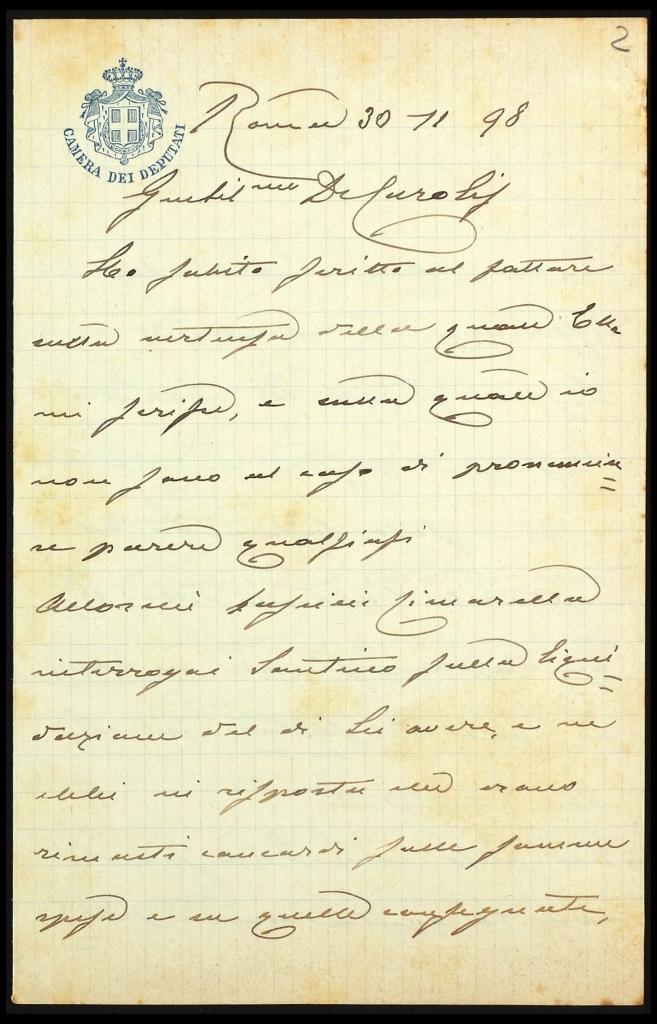 2
CAMERA DEI DEPUTATI
Roma 30 11 98
Gentilmo De Carolis
Ho subito scritto al fattore
sulla vertenza della quale Ella
mi scrisse, e sulla quale io
non sono al caso di pronunzia=
re parere qualsiasi
Allorchè lasciai Cimarella
interrogai Santino sulla liqui=
dazione del di Lei avere, e ne
ebbi in risposta che erano
rimasti concordi sulle somme
spese e su quelle consegnate,